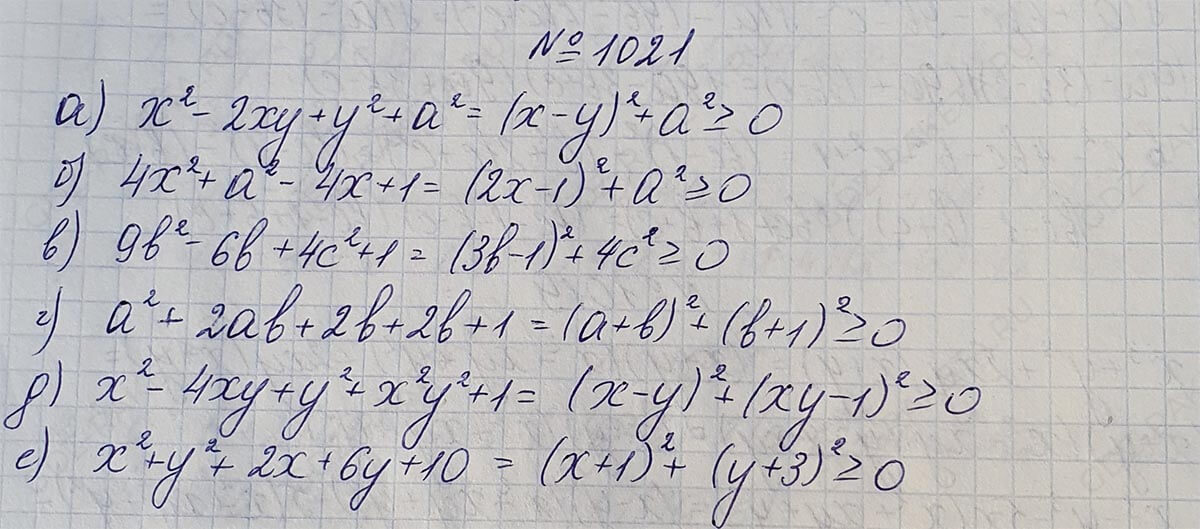 № 1021
а) x² - 2xy + y² + a² = (x - y)² + a² ≥ 0
б) 4x² + a² - 4x + 1 = (2x - 1)² + a² ≥ 0
в) 9b² - 6b + 4c² + 1 = (3b - 1)² + 4c² ≥ 0
г) a² + 2ab + 2b + 2b + 1 = (a + b)² + (b + 1)² ≥ 0
д) x² - 4xy + y² + x²y² + 1 = (x - y)² + (xy - 1)² ≥ 0
е) x² + y² + 2x + 6y + 10 = (x + 1)² + (y + 3)² ≥ 0